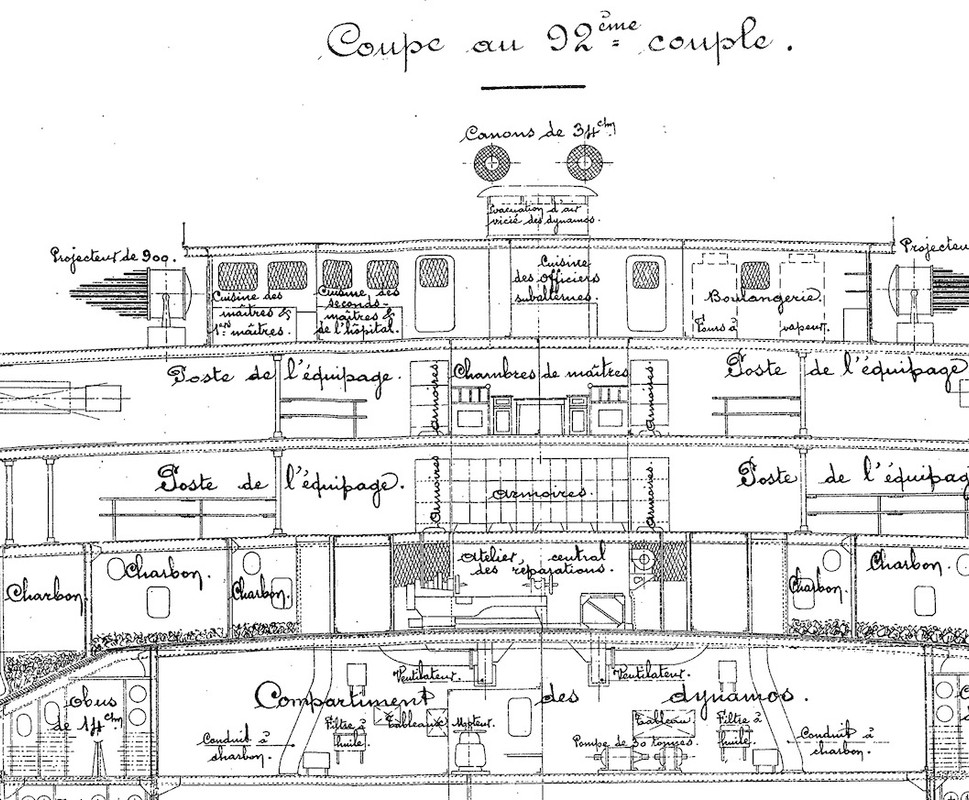 Coupe au 92ème couple.
Canons de 34 c/m
Evacuation d'air
vicié des dynamos.
Projecteur de 900.
Projecteu
Cuisine des
maîtres &
1ers maîtres.
Cuisine des
seconds-
maîtres &
de l'hôpital.
Cuisine
des officiers
subalternes.
Boulangerie.
Fours à vapeur.
Poste de l'équipage.
Armoires
Chambres de maîtres
Armoires
Poste de l'équipage
Poste de l'équipage.
Armoires
Armoires.
Armoires
Poste de l'équipag
Charbon
Charbon.
Charbon.
Atelier central
des réparations.
Charbon.
Charbon.
Ventilateur.
Ventilateur.
obus
de 14 c/m
Compartiment des dynamos.
Conduit à
charbon.
Filtre à
huile.
Tableaux
Moteur.
Pompe de 50 tonnes.
Tableau
Filtre à
huile.
Conduit à
charbon.